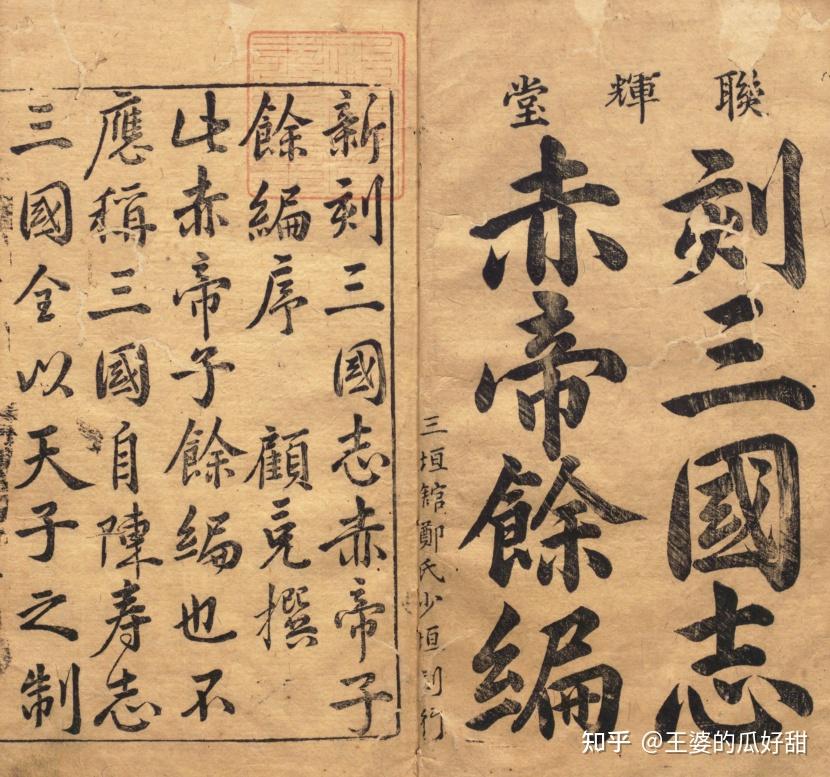 聯輝堂
刻三國志
赤帝餘編
三垣館鄭氏少垣刊行
新刻三國志赤帝子
餘編序 顧充撰
此赤帝子餘編也不
應稱三國自陳寿志
三國全以天子之制
知乎 @王婆的瓜好甜